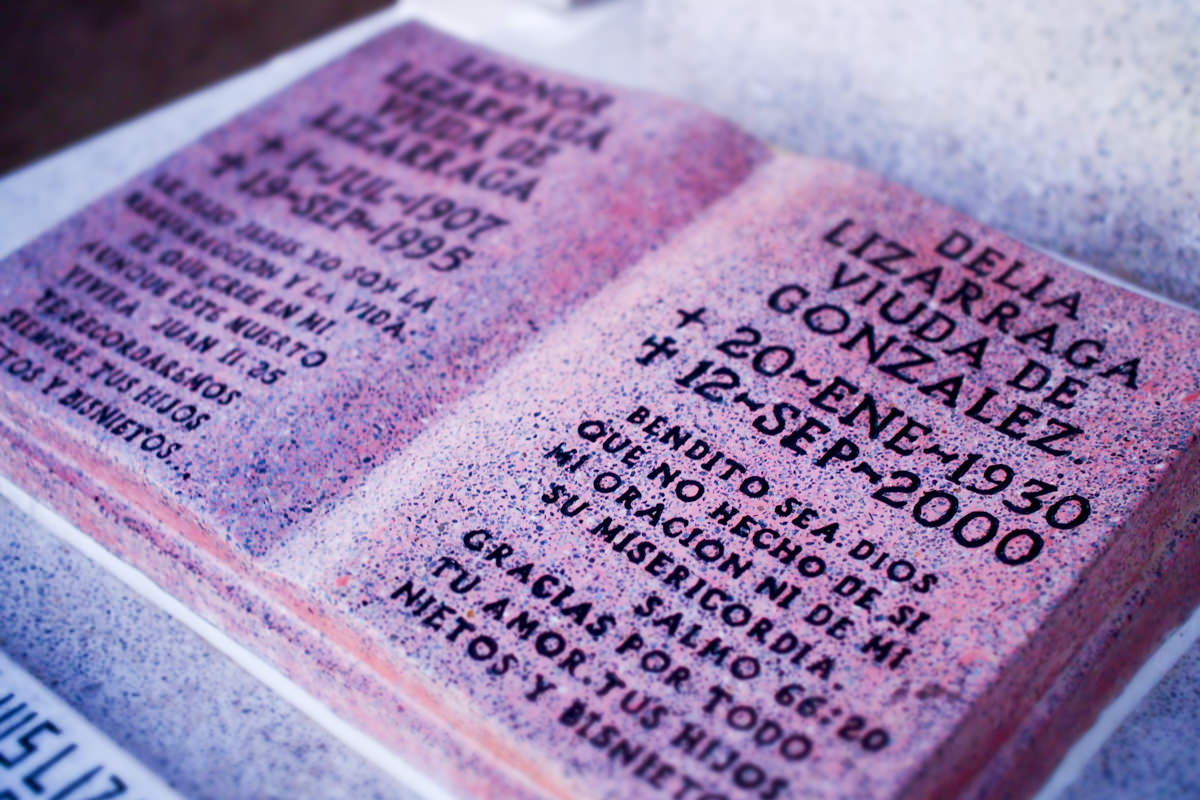 LEONOR
LIZARRAGA
VIUDA DE
LIZARRAGA
1~JUL~1907
19~SEP~1995
LE DIJO JESUS YO SOY LA
RESURRECCION Y LA VIDA.
EL QUE CREE EN MI
AUNQUE ESTE MUERTO
VIVIRA. JUAN 11:25
TE RECORDAREMOS
SIEMPRE. TUS HIJOS
Y BISNIETOS...
DELIA
LIZARRAGA
VIUDA DE
GONZALEZ.
20~ENE~1930
12~SEP~2000
BENDITO SEA DIOS
QUE NO HECHO DE SI
MI ORACION NI DE MI
SU MISERICORDIA.
SALMO 66:20
GRACIAS POR TODO
TU AMOR. TUS HIJOS
NIETOS Y